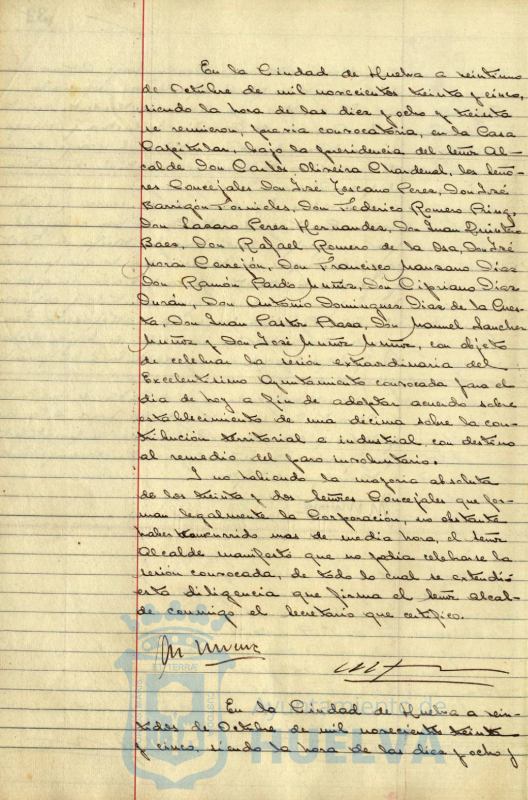 En la Ciudad de Huelva a veintiuno
de Octubre de mil novecientos treinta y cinco,
siendo la hora de las diez y ocho y treinta
se reunieron, previa convocatoria, en la Casa
Capitular, bajo la presidencia del Señor Al-
calde Don Carlos Oliveira Chardenal, los Seño-
res Concejales Don José Toscano Perez, Don José
Barrigón Fornieles, Don Federico Romero
Don Lazaro Perez Hernandez, Don Juan Quintero
Baez, Don Rafael Romero de la Osa, Don José
Morón Cerrejón, Don Francisco Manzano Díaz
Don Ramón Pardo Muñiz, Don Cipriano Diaz
Durán, Don Antonio Dominguez Diaz de la Cues-
ta, Don Juan Pastor Plasa, Don Manuel Sanchez
Muñoz y Don José Muñiz Muñoz, con objeto
de celebrar la sesión extraordinaria del
Excelentisimo Ayuntamiento convocada para el
dia de hoy a fin de adoptar acuerdo sobre
establecimiento de una décima sobre la con-
tribución territorial e industrial, con destino
al remedio del paro involuntario.
Y no habiendo la mayoria absoluta
de los treinta y dos Señores Concejales que for-
man legalmente la Corporación, no obstante
haber transcurrido mas de media hora, el Señor
Alcalde manifestó que no podia celebrarse la
sesión convocada, de todo lo cual se extendió
esta diligencia que firma el Señor Alcal-
de conmigo el Secretario que certifico.
En la Ciudad de Huelva a vein-
tidos de Octubre de mil novecientos treinta
y cinco, siendo la hora de las diez y ocho y
Ayuntamiento de
HUELVA